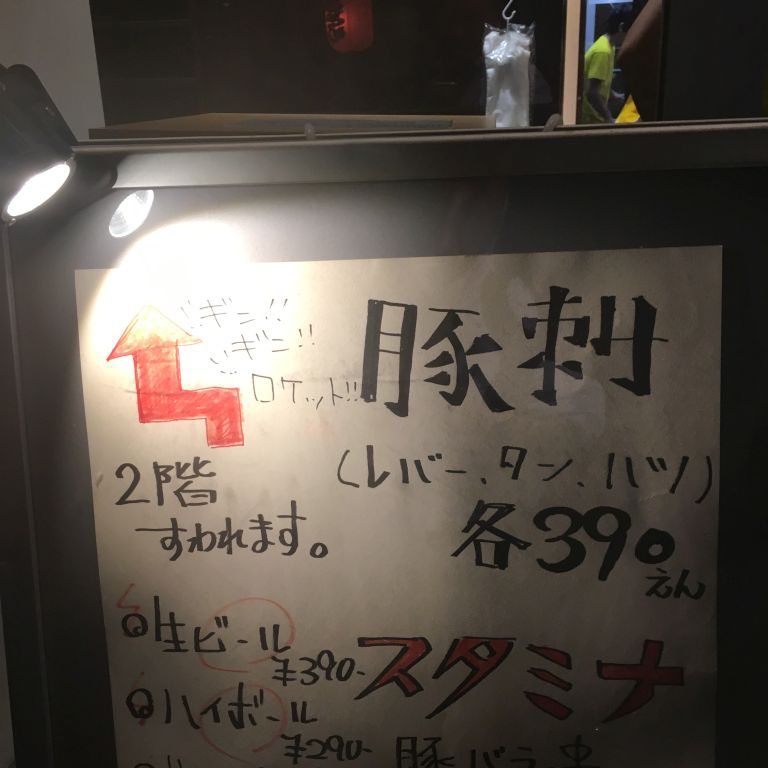 ギン!!
ギン!!
ロケット!!
豚刺
(レバー、タン、ハツ)
各390えん
2階
すわれます。
◎生ビール
¥390-
◎ハイボール
¥290-
スタミナ
豚バラ